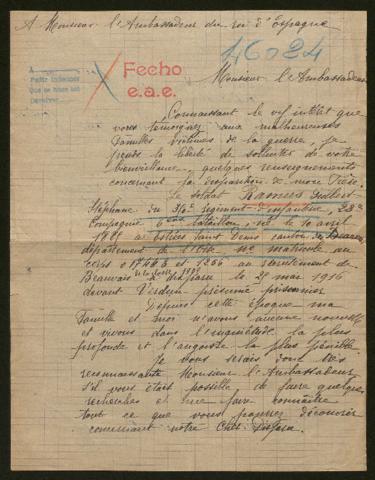 A Monsieur l'Ambassadeur du roi d'Espagne
16024
A
Petit Indiscret
Fecho
e.a.e.
Monsieur l'Ambassadeur
Connaissant le vif intérêt que
vous témoignez aux malheureuses
familles victimes de la guerre, je
prends la liberté de solliciter de votre
bienveillance quelques renseignements
concernant la disparition de mon frère.
Le soldat
Stéphane du régiment d'infanterie, 23e
Compagnie 6eme bataillon, né le 10 avril
canton de Beauvais
département de l'Oise matricule au
corps et 1266 au recrutement de
Beauvais de la classe disparu le 21 mai 1916
devant Verdun présumé prisonnier
Depuis cette époque ma
famille et moi n'avons aucune nouvelle
et vivons dans l'inquiétude la plus
profonde et l'angoisse la plus pénible.
Je vous serais donc très
reconnaissante Monsieur l'Ambassadeur
s'il vous était possible de faire quelques
recherches et me faire connaître
tout ce que vous pourrez découvrir
concernant notre cher